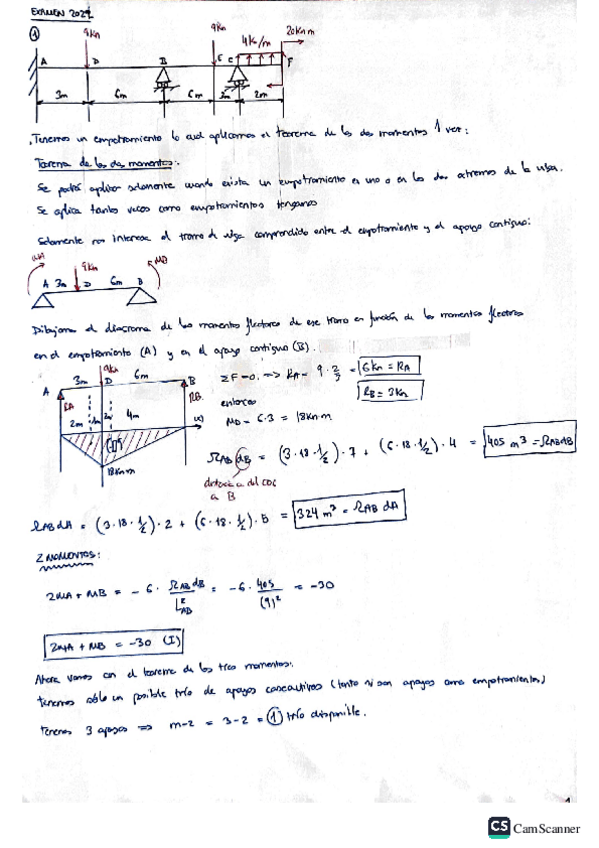 EXAMEN 2021
①
9Kn
9Kn
20Knm
4K/m
A D B E C F
3m 6m 6m 2m
Tenemos un empotramiento lo cual aplicamos el teorema de los dos momentos 1 vez:
Teorema de los dos momentos:
Se podrá aplicar solamente cuando exista un empotramiento en uno o en los dos extremos de la viga.
Se aplica tantas veces como empotramientos tengamos
Solamente nos interesa el tramo de viga comprendido entre el empotramiento y el apoyo contiguo:
MA 9Kn MB
A 3m D 6m B
Dibujamos el diagrama de los momentos flectores de ese tramo en función de los momentos flectores
en el empotramiento (A) y en el apoyo contiguo (B).
9Kn
3m D 6m
A B
RA RB
2m 1m 2m 4m
18Knm
ΣF=0 => RA = 9·2/3 = 6Kn = RA
RB = 3Kn
entonces
MD = 6·3 = 18Kn·m
ΩAB dB = (3·18·1/2)·7 + (6·18·1/2)·4 = 405 m³ = ΩAB dB
distancia del CDG
a B
ΩAB dA = (3·18·1/2)·2 + (6·18·1/2)·5 = 324 m³ = ΩAB dA
2 MOMENTOS:
2MA + MB = -6 · ΩAB dB / L²AB = -6 · 405/(9)² = -30
2MA + MB = -30 (I)
Ahora vamos con el teorema de los tres momentos:
tenemos sólo un posible trío de apoyos consecutivos (tanto si son apoyos como empotramientos)
tenemos 3 apoyos => m-2 = 3-2 = ① trío disponible.
1
CS CamScanner